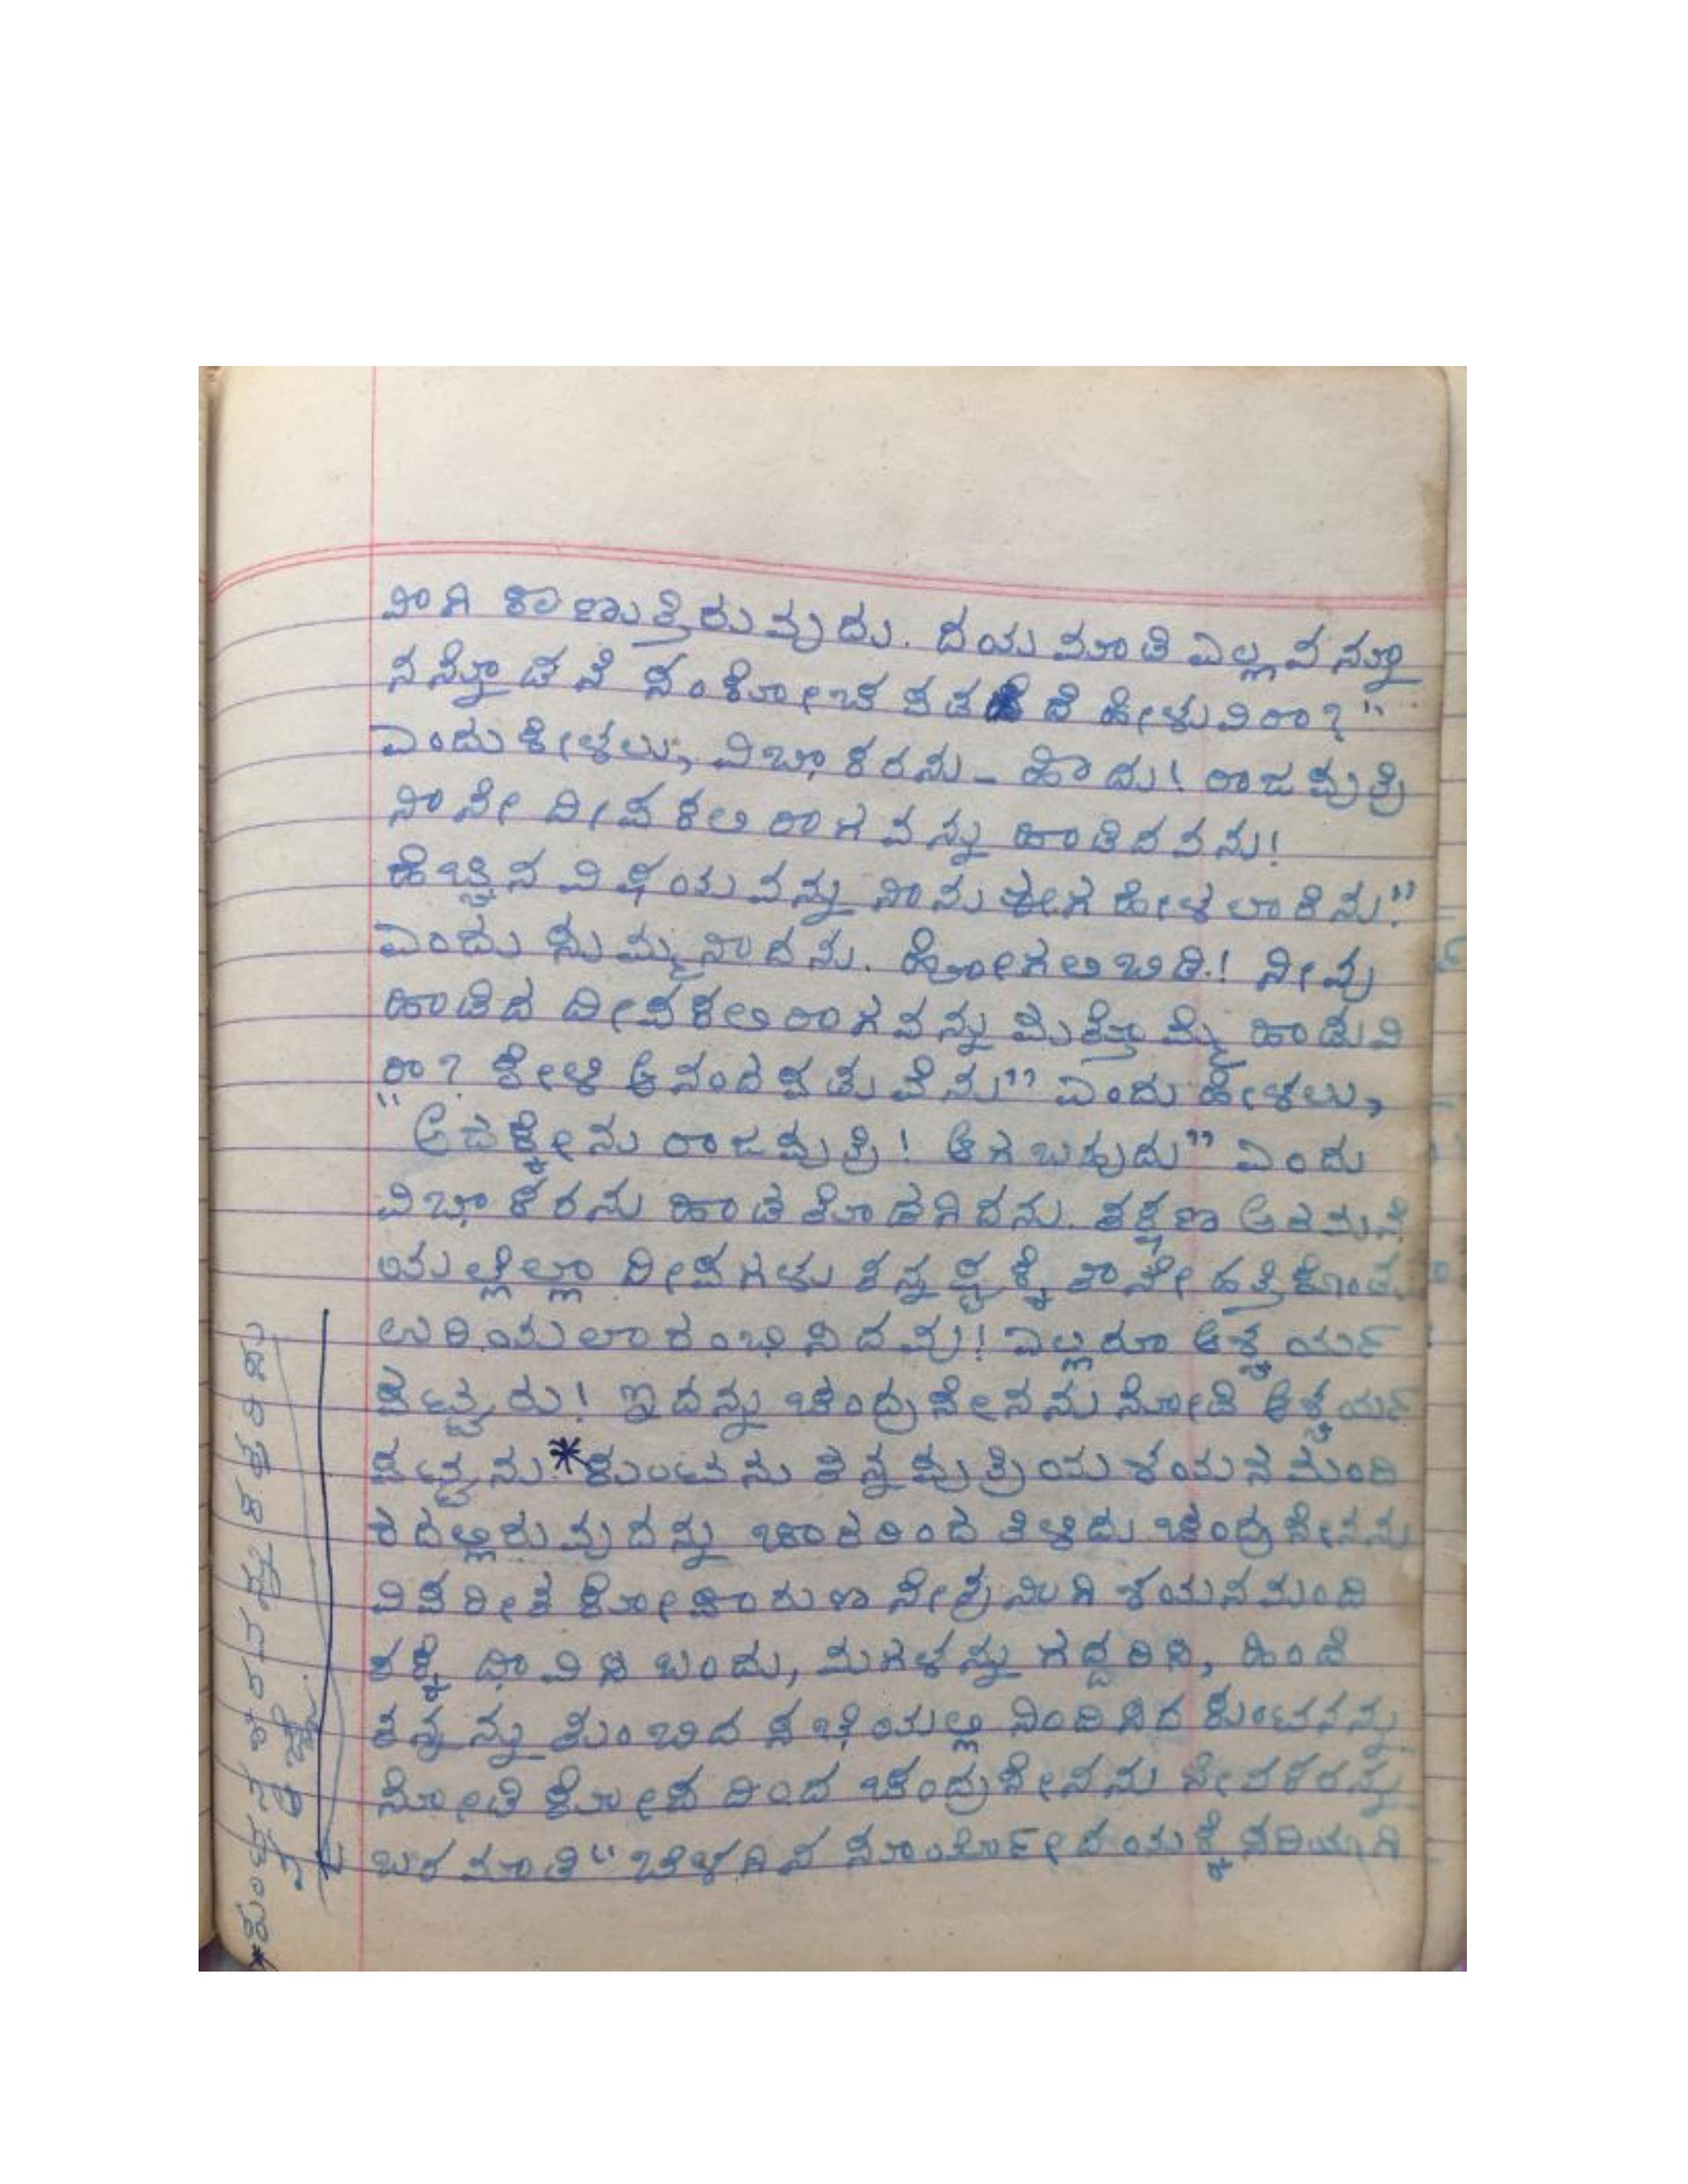 ನಾಗಿ ಕಾಣುತ್ತಿರುವುದು. ದಯಮಾಡಿ ಎಲ್ಲವನ್ನೂ
ನನ್ನೊಡನೆ ಸಂಕೋಚ ಪಡದೆ ಹೇಳುವಿರಾ?"
ಎಂದು ಕೇಳಲು, ವಿಭಾಕರನು - ಹೌದು! ರಾಜಪುತ್ರಿ
ನಾನೇ ದೀಪಕಲಿ ರಾಗವನ್ನು ಹಾಡಿದವನು!
ಹೆಚ್ಚಿನ ವಿಷಯವನ್ನು ನಾನು ಈಗ ಹೇಳಲಾರೆನು"
ಎಂದು ಸುಮ್ಮನಾದನು. ಹೋಗಲಿ ಬಿಡಿ! ನೀವು
ಹಾಡಿದ ದೀಪಕಲಿ ರಾಗವನ್ನು ಮತ್ತೊಮ್ಮೆ ಹಾಡುವಿ
ರಾ? ಕೇಳಿ ಆನಂದ ಪಡುವೆನು" ಎಂದು ಹೇಳಲು,
"ಅದಕ್ಕೇನು ರಾಜಪುತ್ರಿ! ಆಗಬಹುದು" ಎಂದು
ವಿಭಾಕರನು ಹಾಡತೊಡಗಿದನು. ತಕ್ಷಣ ಅರಮನೆ
ಯಲ್ಲೆಲ್ಲಾ ದೀಪಗಳು ತನ್ನಷ್ಟಕ್ಕೆ ತಾನೇ ಹತ್ತಿಕೊಂಡ
ಉರಿಯಲಾರಂಭಿಸಿದವು! ಎಲ್ಲರೂ ಆಶ್ಚರ್ಯ
ಪಟ್ಟರು! ಇದನ್ನು ಚಂದ್ರಸೇನನು ನೋಡಿ ಆಶ್ಚರ್ಯ
ಪಟ್ಟನು.*ಕುಂಟನು ತನ್ನ ಪುತ್ರಿಯ ಶಯನ ಮಂದಿ
ರದಲ್ಲಿರುವುದನ್ನು ಚಾರರಿಂದ ತಿಳಿದು ಚಂದ್ರಸೇನನು
ವಿಪರೀತ ಕೋಪಾರುಣ ನೇತ್ರನಾಗಿ ಶಯನಮಂದಿ
ರಕ್ಕೆ ಧಾವಿಸಿ ಬಂದು, ಮಗಳನ್ನು ಗದ್ದರಿಸಿ, ಹಿಂದೆ
ತನ್ನನ್ನು ತುಂಬಿದ ಸಭೆಯಲ್ಲಿ ನಿಂದಿಸಿದ ಕುಂಟನನ್ನು
ನೋಡಿ ಕೋಪದಿಂದ ಚಂದ್ರಸೇನನು ಸೇವಕರನ್ನು
ಬರಮಾಡಿ "ಬೆಳಗಿನ ಸೂರ್ಯೋದಯಕ್ಕೆ ಸರಿಯಾಗಿ